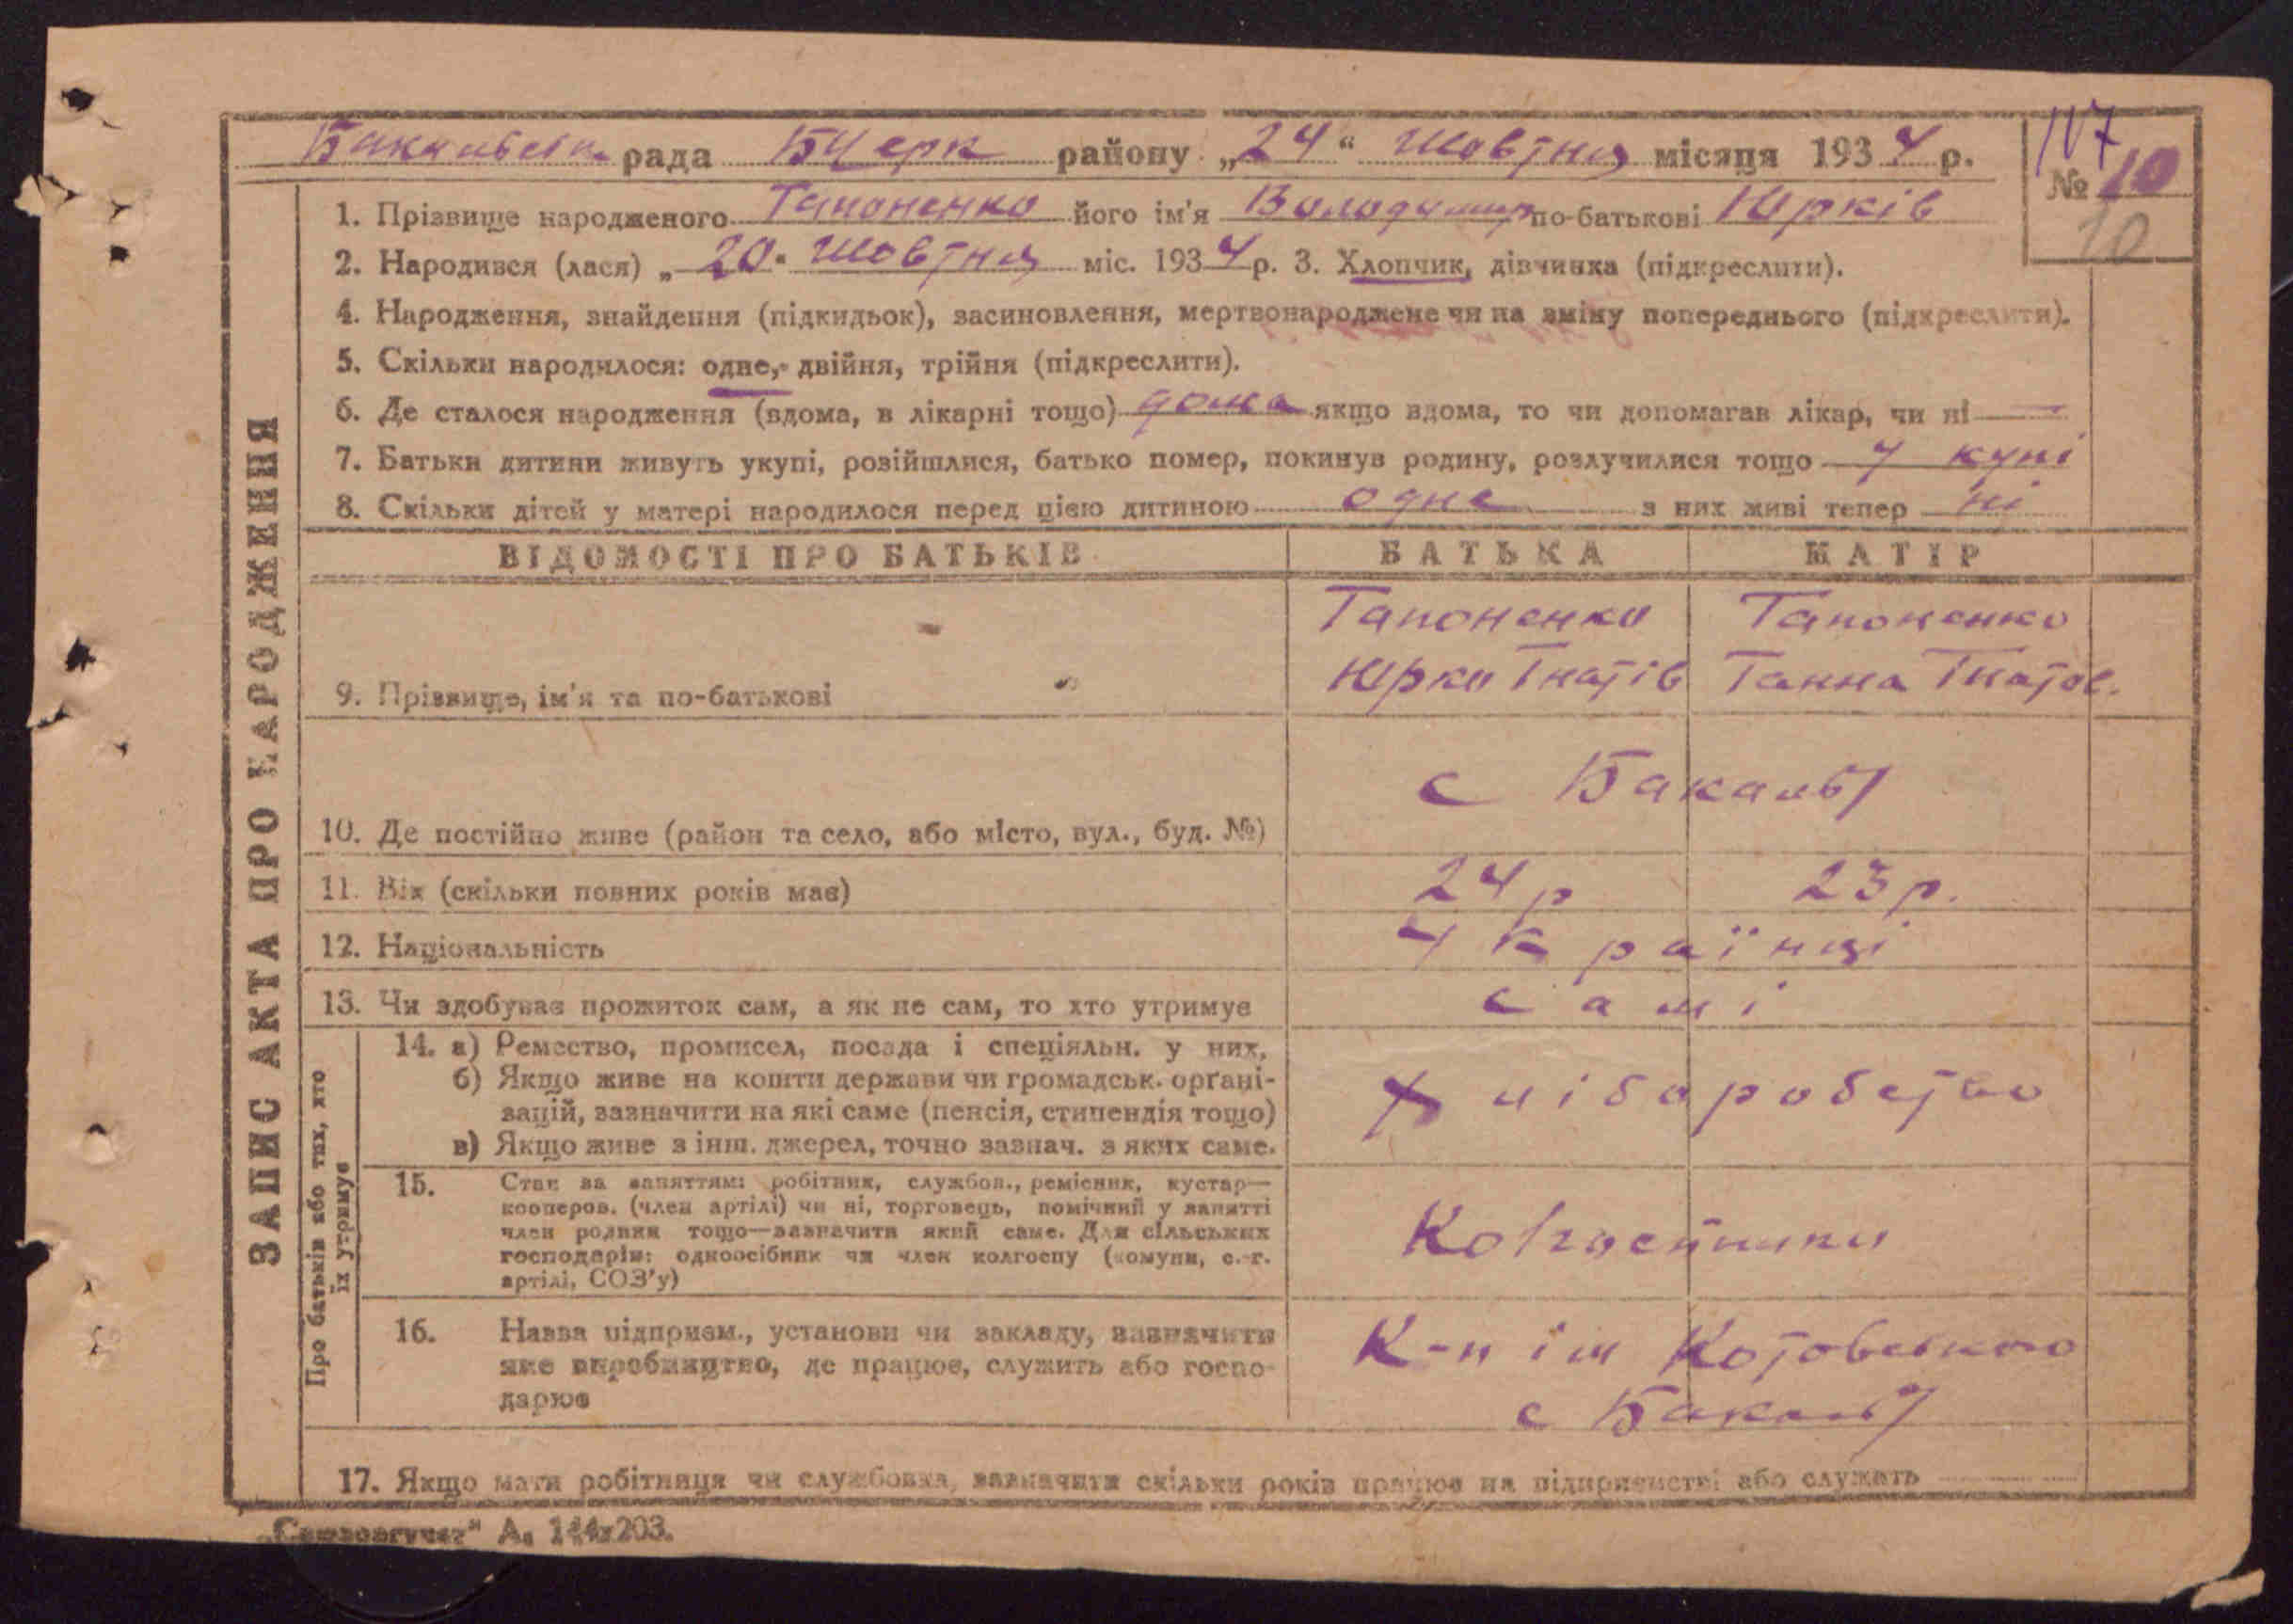 Бакаївська рада БЦерк району „24“ Жовтня місяця 1934 р.
117
№ 10
10
1. Прізвище народженого Гапоненко його ім'я Володимир по-батькові Юрків
2. Народився (лася) „20“ Жовтня міс. 1934 р. 3. Хлопчик, дівчинка (підкреслити).
4. Народження, знайдення (підкидьок), засиновлення, мертвонароджене чи на зміну попереднього (підкреслити).
5. Скільки народилося: одне, двійня, трійня (підкреслити).
6. Де сталося народження (вдома, в лікарні тощо) дома якщо вдома, то чи допомагав лікар, чи ні —
7. Батьки дитини живуть укупі, розійшлися, батько помер, покинув родину, розлучилися тощо у купі
8. Скільки дітей у матері народилося перед цією дитиною одне з них живі тепер ні
ЗАПИС АКТА ПРО НАРОДЖЕННЯ
ВІДОМОСТІ ПРО БАТЬКІВ БАТЬКА МАТІР
Гапоненко Гапоненко
9. Прізвище, ім'я та по-батькові Юрко Гнатів Ганна Гнатов.
10. Де постійно живе (район та село, або місто, вул., буд. №) с Бакали
11. Вік (скільки повних років має) 24 р 23 р.
12. Національність Українці
13. Чи здобуває прожиток сам, а як не сам, то хто утримує самі
Про батьків або тих, хто
їх утримує
14. а) Ремество, промисел, посада і спеціяльн. у них,
б) Якщо живе на кошти держави чи громадськ. орґані-
зацій, зазначити на які саме (пенсія, стипендія тощо)
в) Якщо живе з інш. джерел, точно зазнач. з яких саме.
Хліборобство
15. Стан за заняттям: робітник, службов., ремісник, кустар—
кооперов. (член артілі) чи ні, торговець, помічний у занятті
член родини тощо—зазначити який саме. Для сільських
господарів: одноосібник чи член колгоспу (комуни, с.-г.
артілі, СОЗ'у)
Колгоспники
16. Назва підприєм., установи чи закладу, зазначити
яке виробництво, де працює, служить або госпо-
дарює
К-п ім Котовського
с Бакали
17. Якщо мати робітниця чи службовка, зазначити скільки років працює на підприємстві або служать
А₅ 144x203.